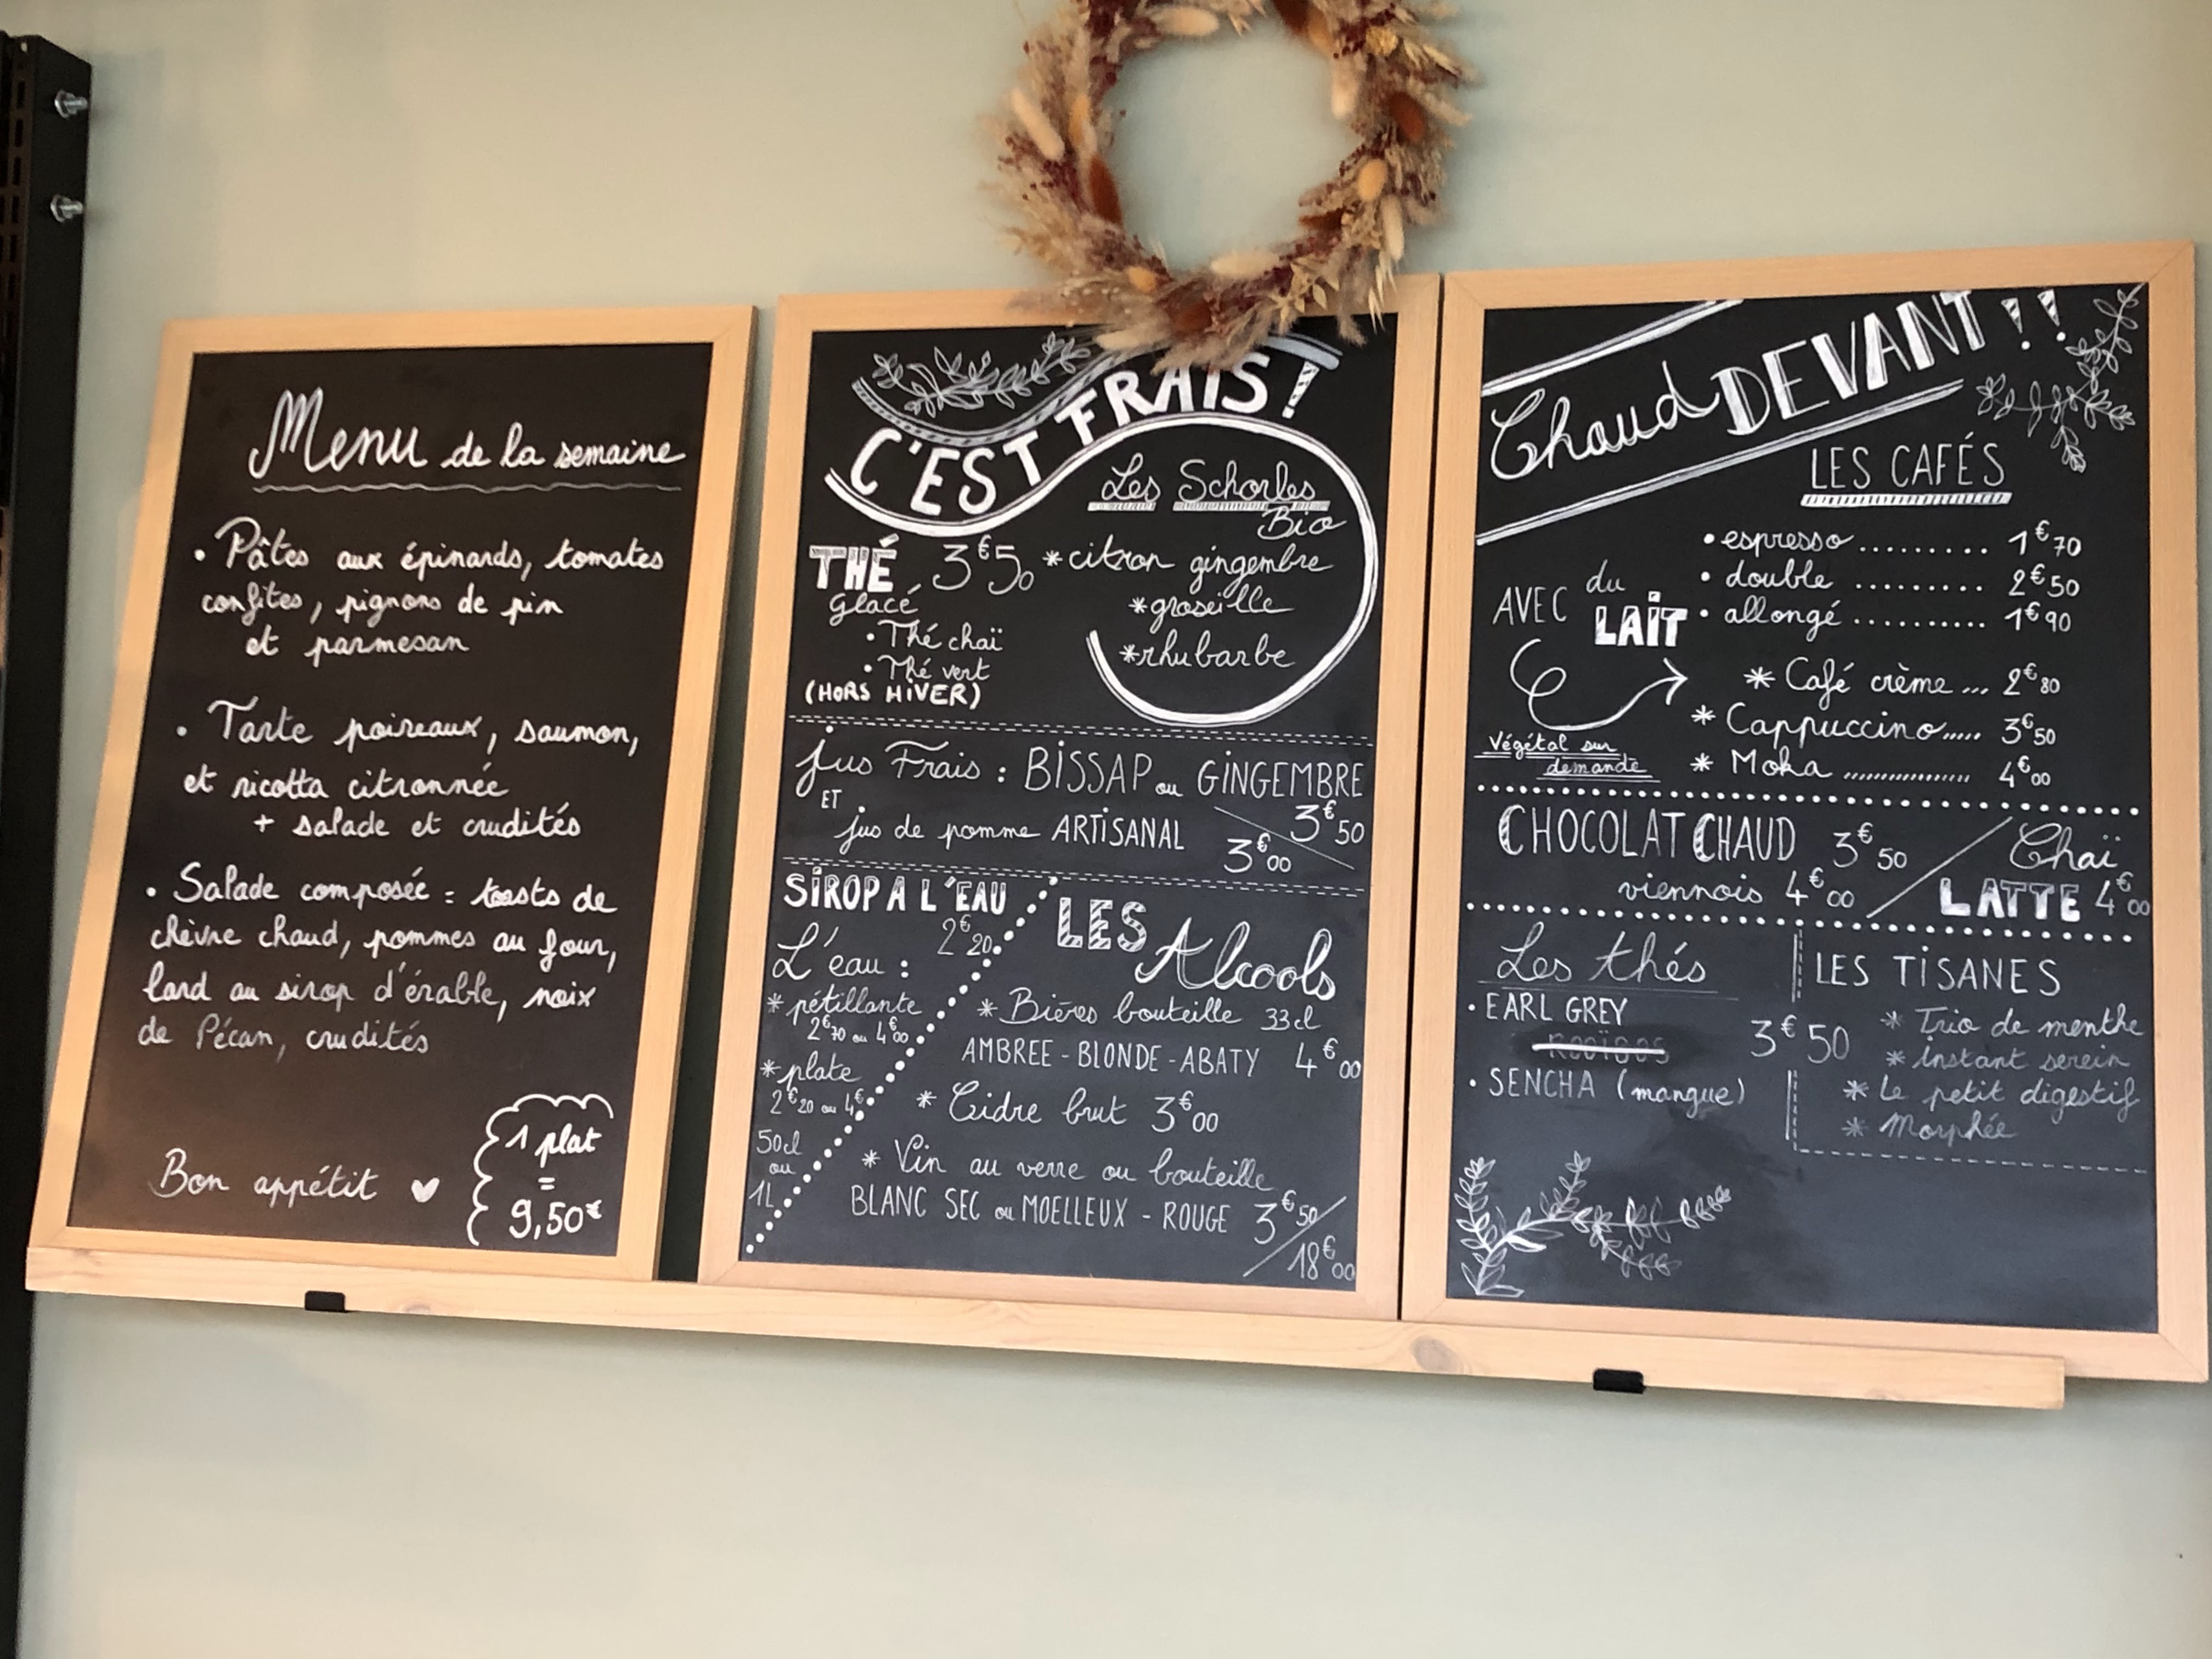 Menu de la semaine
• Pâtes aux épinards, tomates
confites, pignons de pin
et parmesan
• Tarte poireaux, saumon,
et ricotta citronnée
+ salade et crudités
• Salade composée = toasts de
chèvre chaud, pommes au four,
lard au sirop d'érable, noix
de Pécan, crudités
Bon appétit ♥
1 plat
=
9,50€
C'EST FRAIS !
Les Schorles
Bio
* citron gingembre
* groseille
* rhubarbe
THÉ 3€50
Glacé
• Thé chaï
• Thé vert
(HORS HIVER)
Jus Frais : BISSAP ou GINGEMBRE
3€50
ET
jus de pomme ARTISANAL
3€00
SIROP A L'EAU
2€20
L'eau :
* pétillante
2€70 ou 4€00
* plate
2€20 ou 4€
50cl
ou
1L
LES Alcools
* Bières bouteille 33cl
AMBREE - BLONDE - ABATY 4€00
* Cidre brut 3€00
* Vin au verre ou bouteille
BLANC SEC ou MOELLEUX - ROUGE 3€50
18€00
Chaud DEVANT !!
LES CAFÉS
• espresso .......... 1€70
• double ......... 2€50
• allongé .......... 1€90
AVEC du
LAIT
* Café crème ... 2€80
* Cappuccino..... 3€50
* Moka ................. 4€00
Végétal sur
demande
CHOCOLAT CHAUD 3€50
viennois 4€00
Chaï
LATTE 4€00
Les thés
• EARL GREY
ROOÏBOS
• SENCHA (mangue)
3€50
LES TISANES
* Trio de menthe
* instant serein
* Le petit digestif
* Morphée